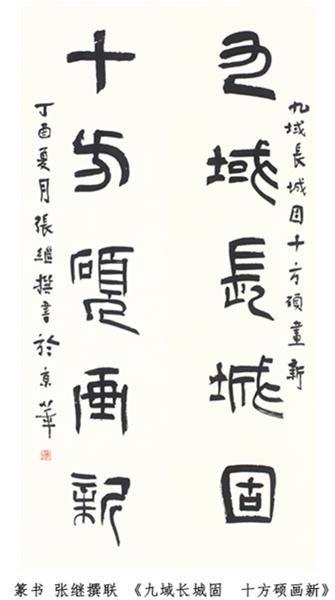 九域長城固十方碩畫新
九域長城固
十方碩畫新
丁酉夏月張繼撰書於京華
篆书 张继撰联 《九域长城固 十方硕画新》